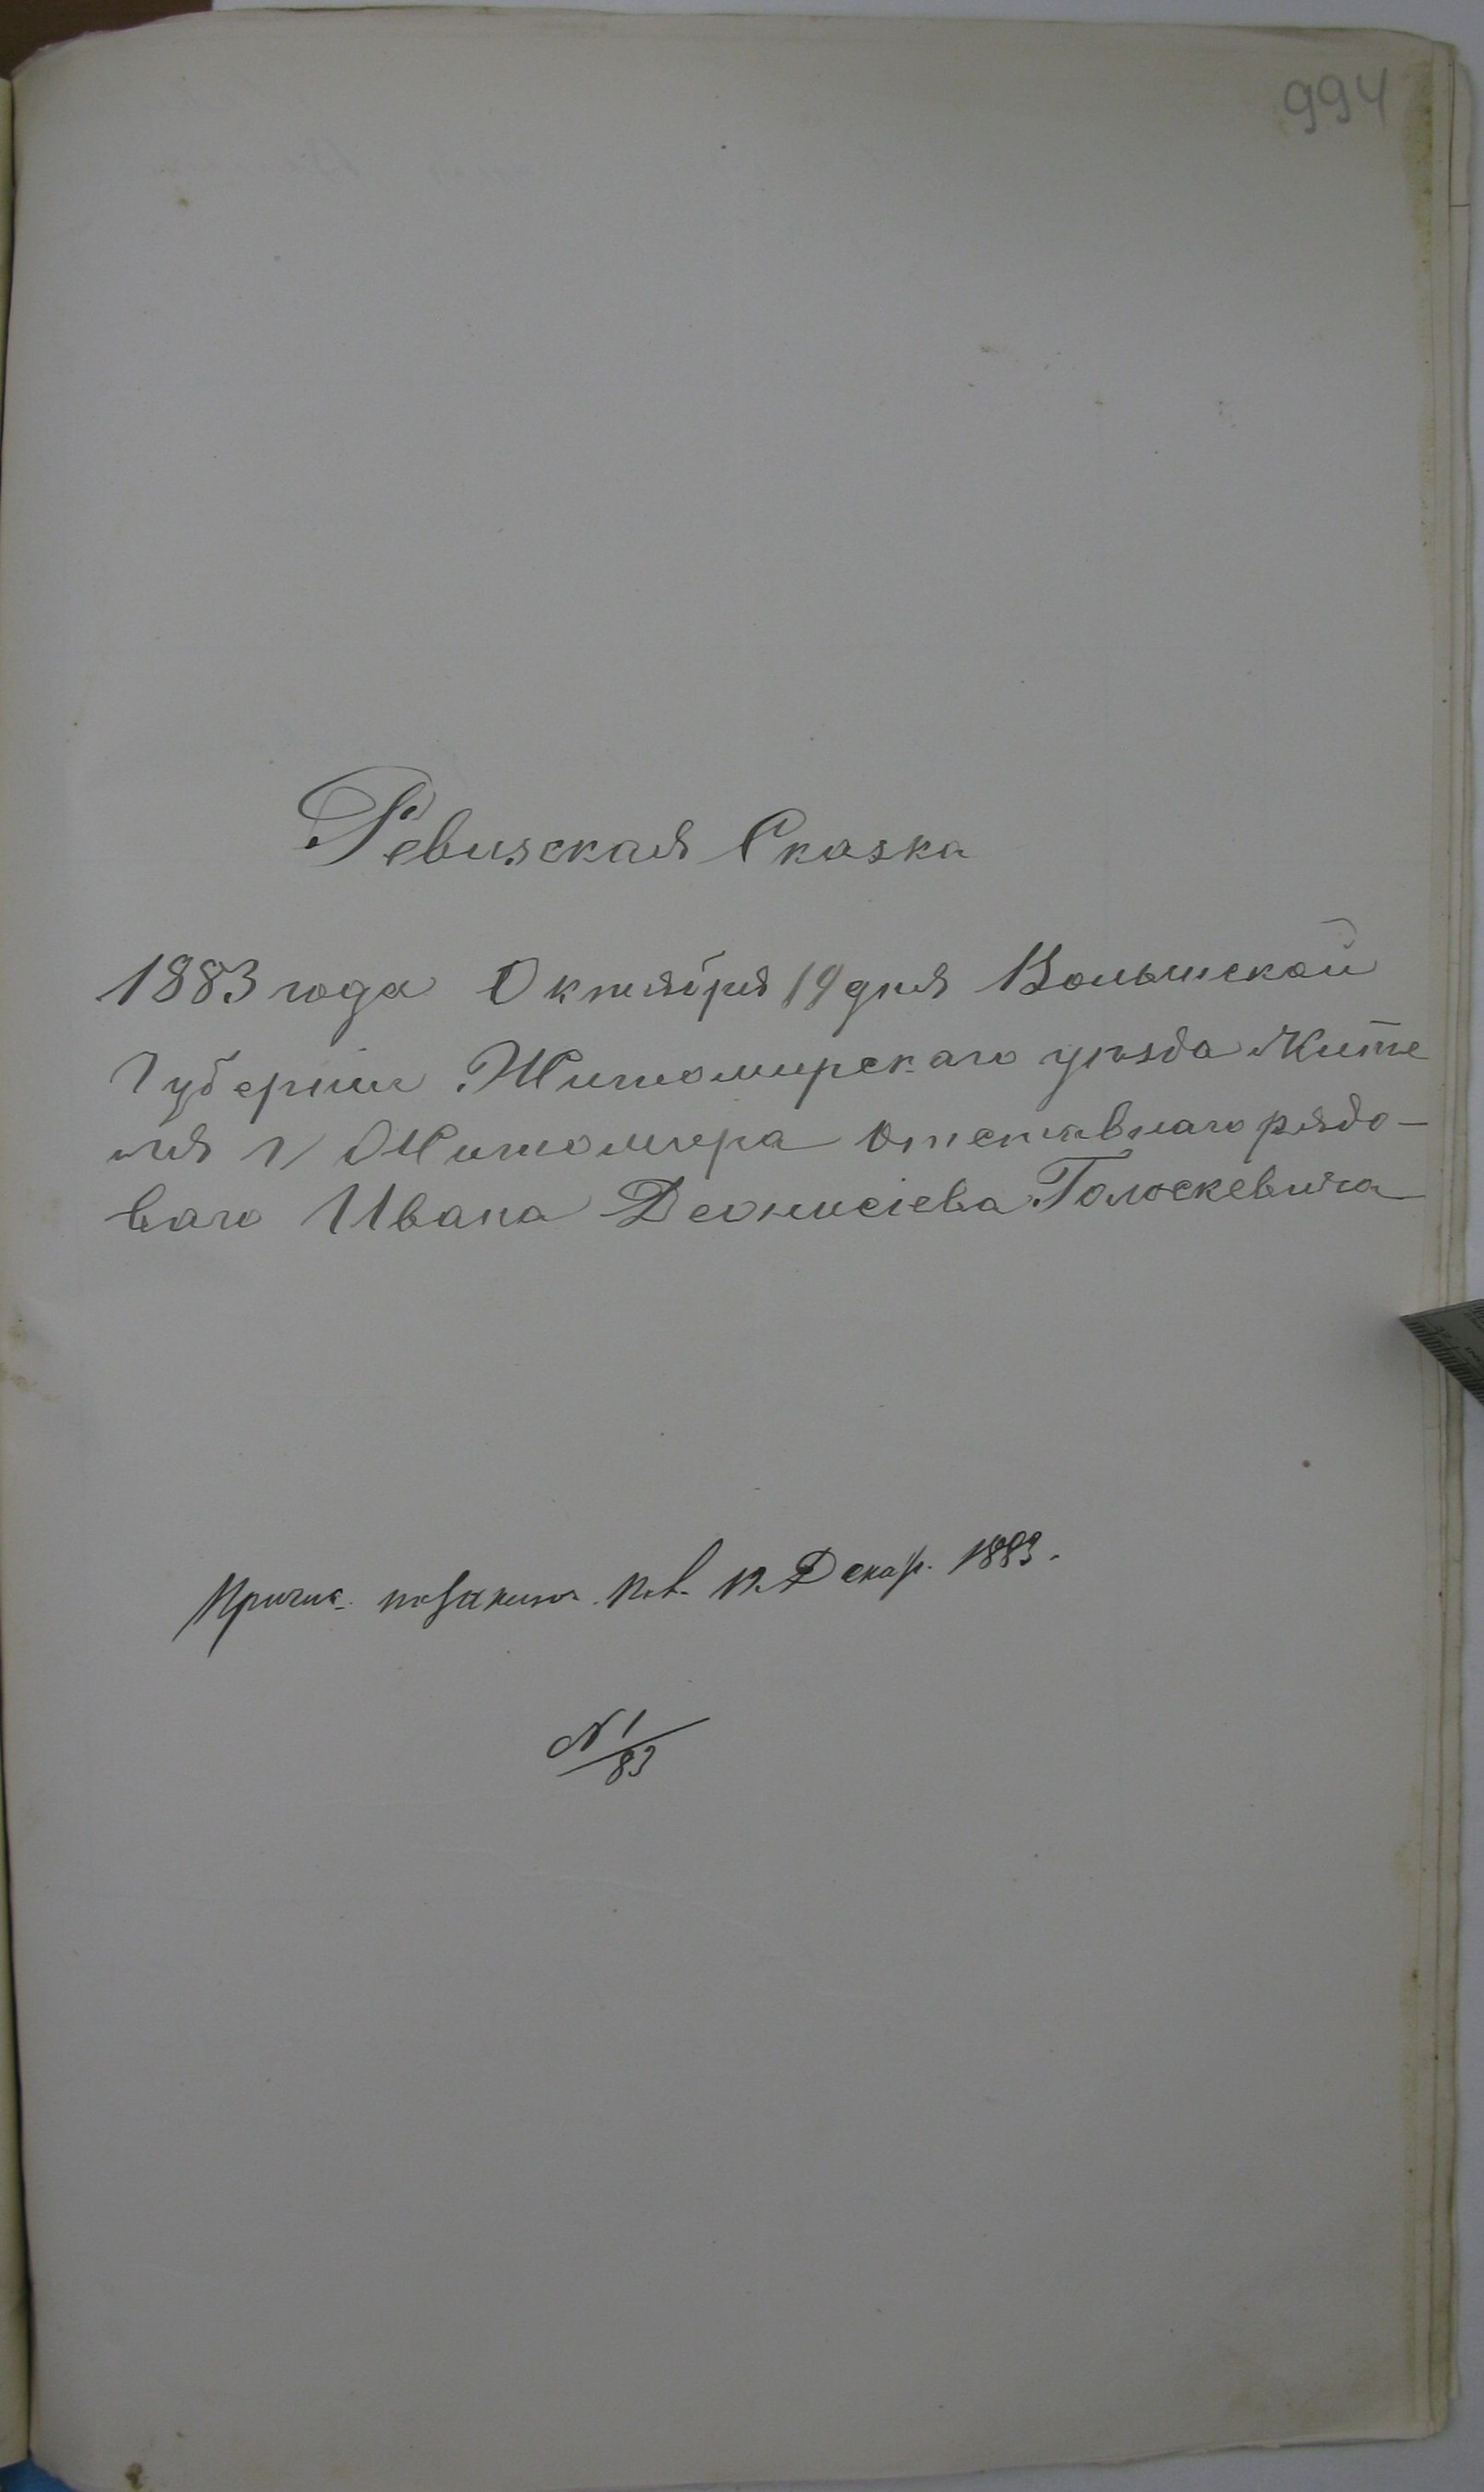 994
Ревизская Сказка
1883 года Октября 19 дня Волынской
Губерніи Житомирскаго уѣзда Жите
ля г Житомира отставнаго рядо-
ваго Ивана Деонисіева Голоскевича
Причис. 12 Декабр. 1883.
N 1/83